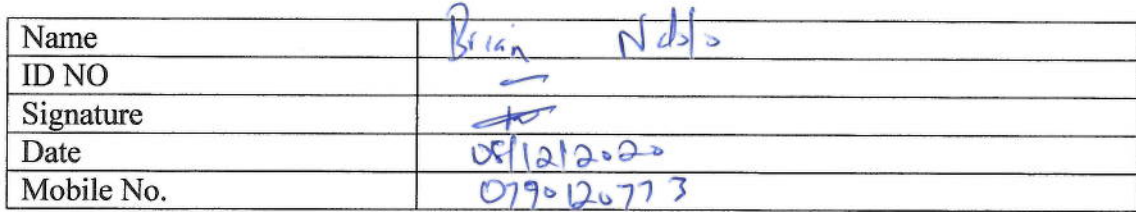 Name Brian Ndolo
ID NO —
Signature
Date 08/12/2020
Mobile No. 0790120773